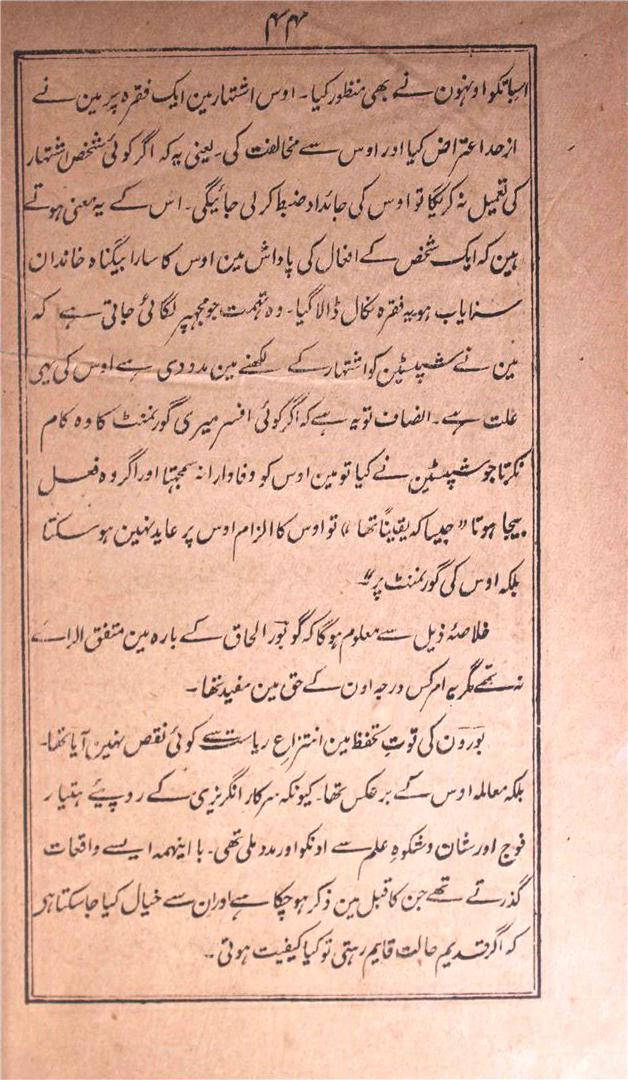 ۴۴
اسباتکو اونہون نے بھی منظور کیا۔ اوس اشتہار مین ایک فقرہ پر مین نے
از حد اعتراض کیا اور اوس سے مخالفت کی۔ یعنی یہ کہ اگر کوئی شخص اشتہار
کی تعمیل نہ کریگا تو اوس کی جائداد ضبط کر لی جائیگی۔ اس کے یہ معنی ہوتے
ہین کہ ایک شخص کے افعال کی پاداش مین اوس کا سارا بیگناہ خاندان
سزایاب ہو یہ فقرہ نکال ڈالا گیا۔ وہ تہمت جو مجھپر لگائی جاتی ہے کہ
مین نے شپسٹین کو اشتہار کے لکھنے مین مدد دی ہے اوس کی یہی
علت ہے۔ انصاف تو یہ ہے کہ اگر کوئی افسر میری گورنمنٹ کا وہ کام
نکرتا جو شپسٹین نے کیا تو مین اوس کو وفادار نہ سمجہتا اور اگر وہ فعل
بیجا ہوتا "جیسا کہ یقیناً تھا" تو اوس کا الزام اوس پر عاید نہین ہو سکتا
بلکہ اوس کی گورنمنٹ پر"۔
خلاصۂ ذیل سے معلوم ہو گا کہ گو بَورَ الحاق کے بارہ مین متفق الراے
نہ تھے مگر یہ امر کس درجہ اون کے حق مین مفید تھا۔
بَورَون کی قوتِ تحفظ مین انتزاعِ ریاست سے کوئی نقص نہین آیا تھا۔
بلکہ معاملہ اوس کے برعکس تھا۔ کیونکہ سرکار انگریزی کے روپیئے ہتیار
فوج اور شان و شکوہِ علم سے اونکو اور مدد ملی تھی۔ با اینہمہ ایسے واقعات
گذرتے تھے جن کا قبل مین ذکر ہو چکا ہے اور ان سے خیال کیا جا سکتا ہی
کہ اگر قدیم حالت قایم رہتی تو کیا کیفیت ہوتی۔